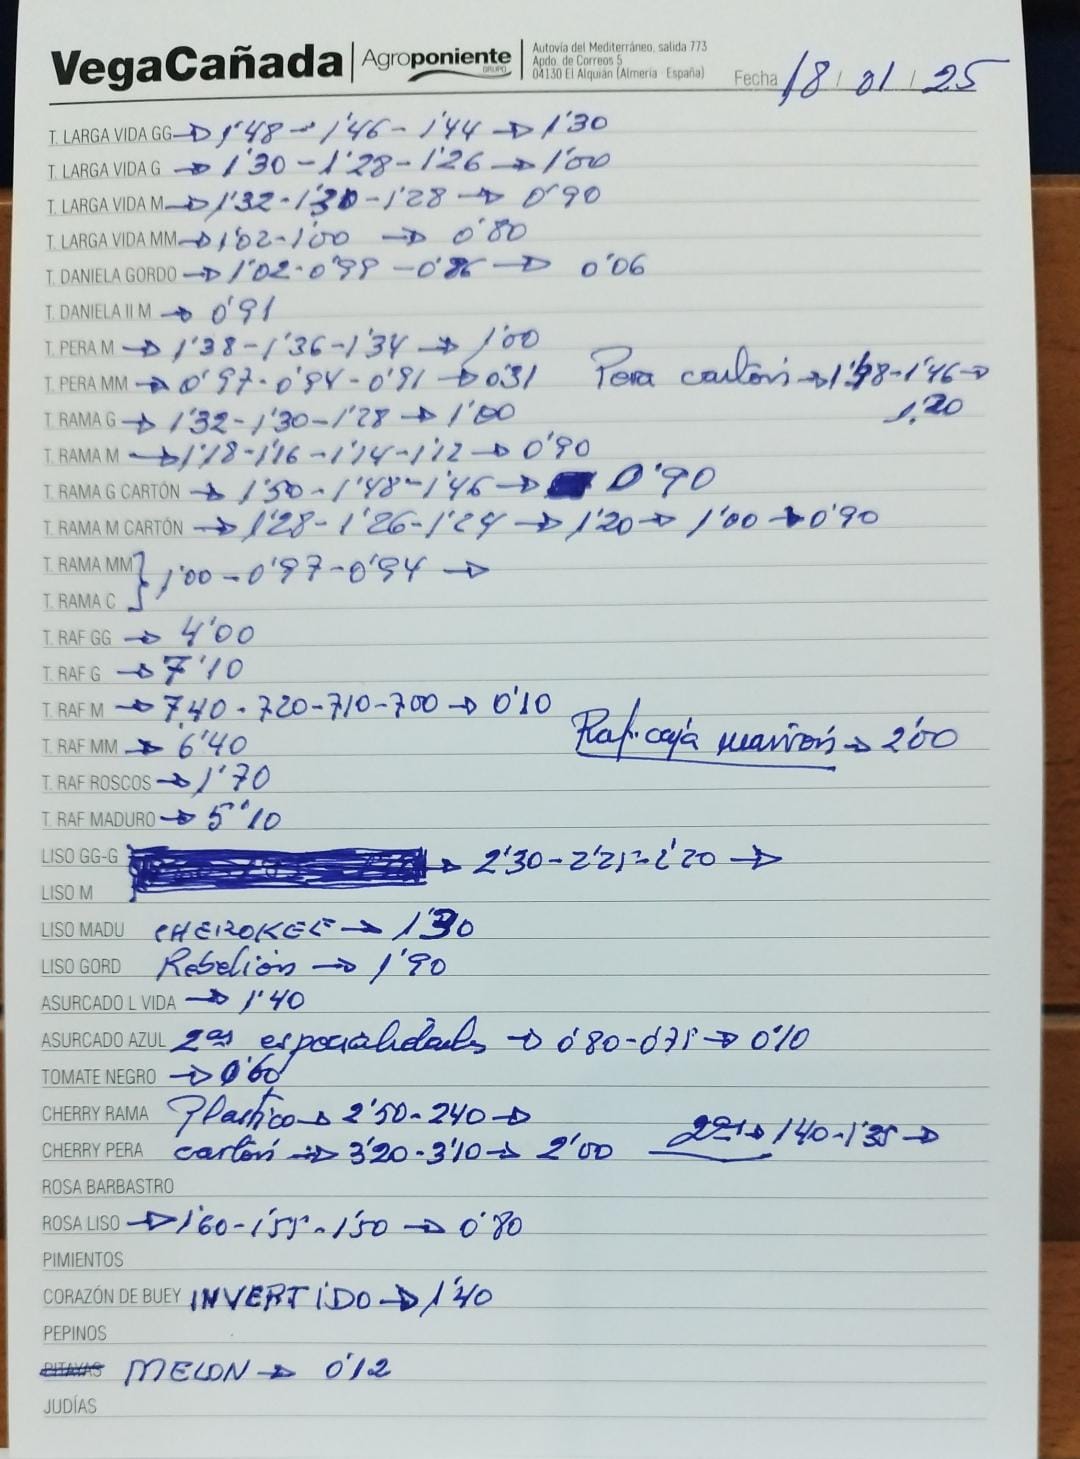 VegaCañada Agroponiente GRUPO
Autovía del Mediterráneo, salida 773
Apdo. de Correos 5
04130 El Alquián (Almería - España)
Fecha 18 / 01 / 25
T. LARGA VIDA GG → 1'48 - 1'46 - 1'44 → 1'30
T. LARGA VIDA G → 1'30 - 1'28 - 1'26 → 1'00
T. LARGA VIDA M → 1'32 - 1'30 - 1'28 → 0'90
T. LARGA VIDA MM → 1'02 - 1'00 → 0'80
T. DANIELA GORDO → 1'02 - 0'99 - 0'86 → 0'06
T. DANIELA II M → 0'91
T. PERA M → 1'38 - 1'36 - 1'34 → 1'00
T. PERA MM → 0'97 - 0'94 - 0'91 → 031 Pera cartón → 1'48 - 1'46 →
1,20
T. RAMA G → 1'32 - 1'30 - 1'28 → 1'00
T. RAMA M → 1'18 - 1'16 - 1'14 - 1'12 → 0'90
T. RAMA G CARTÓN → 1'50 - 1'48 - 1'46 → 0'90
T. RAMA M CARTÓN → 1'28 - 1'26 - 1'24 → 1'20 → 1'00 → 0'90
T. RAMA MM } 1'00 - 0'97 - 0'94 →
T. RAMA C
T. RAF GG → 4'00
T. RAF G → 7'10
T. RAF M → 740 - 720 - 710 - 700 → 0'10
T. RAF MM → 6'40 Raf. caja marrón → 2'00
T. RAF ROSCOS → 1'70
T. RAF MADURO → 5'10
LISO GG-G → 2'30 - 2'25 - 2'20 →
LISO M
LISO MADU CHEROKEE → 1'30
LISO GORD Rebelión → 1'90
ASURCADO L VIDA → 1'40
ASURCADO AZUL 2as especialidades → 0'80 - 0'75 → 0'10
TOMATE NEGRO → 0'60
CHERRY RAMA Plastico → 2'50 - 240 →
CHERRY PERA cartón → 3'20 - 3'10 → 2'00 2as → 140 - 1'35 →
ROSA BARBASTRO
ROSA LISO → 1'60 - 1'55 - 1'50 → 0'80
PIMIENTOS
CORAZÓN DE BUEY INVERTIDO → 1'40
PEPINOS
PITAYAS MELON → 0'12
JUDÍAS